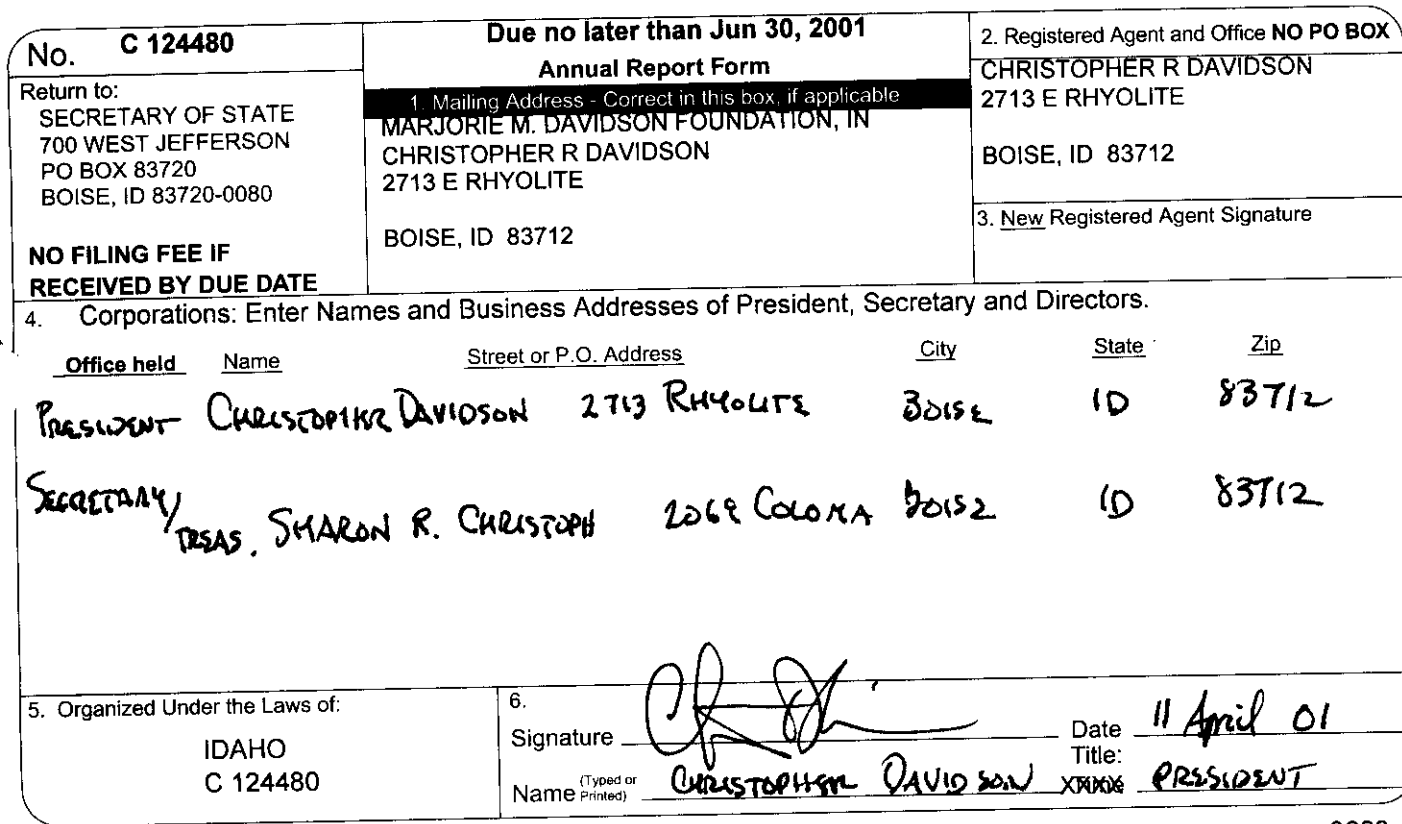 No. C 124480
Return to:
SECRETARY OF STATE
700 WEST JEFFERSON
PO BOX 83720
BOISE, ID 83720-0080
NO FILING FEE IF
RECEIVED BY DUE DATE
Due no later than Jun 30, 2001
Annual Report Form
1. Mailing Address - Correct in this box, if applicable
MARJORIE M. DAVIDSON FOUNDATION, IN
CHRISTOPHER R DAVIDSON
2713 E RHYOLITE
BOISE, ID 83712
2. Registered Agent and Office NO PO BOX
CHRISTOPHER R DAVIDSON
2713 E RHYOLITE
BOISE, ID 83712
3. New Registered Agent Signature
4. Corporations: Enter Names and Business Addresses of President, Secretary and Directors.
Office held Name Street or P.O. Address City State Zip
PRESIDENT CHRISTOPHER DAVIDSON 2713 RHYOLITE BOISE ID 83712
SECRETARY/
TREAS. SHARON R. CHRISTOPH COLOMA BOISE ID 83712
5. Organized Under the Laws of:
IDAHO
C 124480
6.
Signature
Date 11 April 01
Name (Typed or Printed) CHRISTOPHER DAVIDSON
Title: PRESIDENT